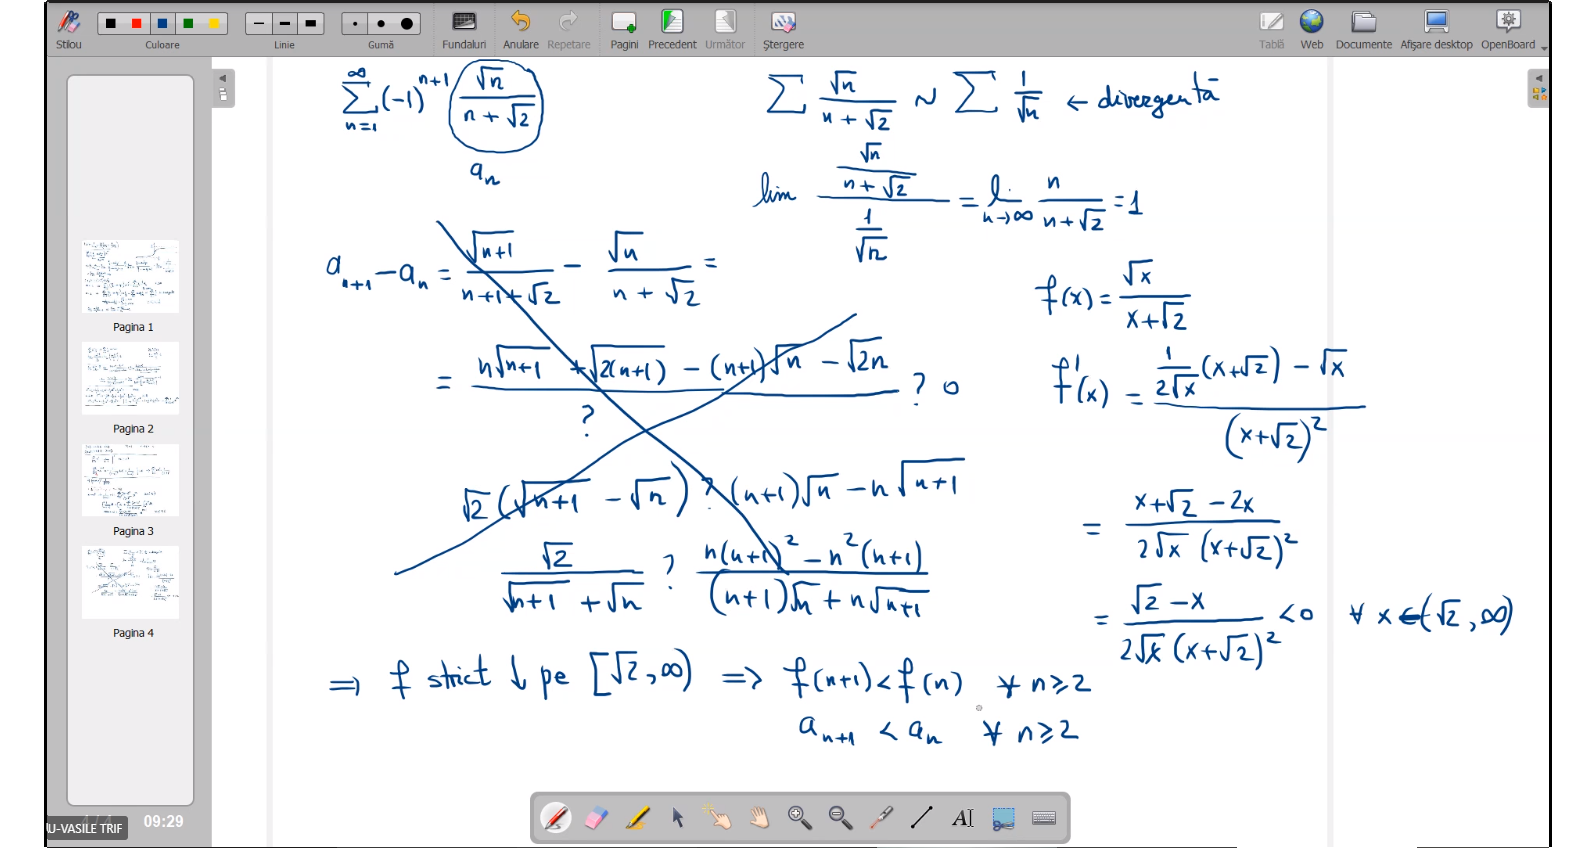 Stilou Culoare Linie Gumă Fundaluri Anulare Repetare Pagini Precedent Următor Ștergere Tablă Web Documente Afișare desktop OpenBoard
Pagina 1
Pagina 2
Pagina 3
Pagina 4
U-VASILE TRIF 09:29
∑_{n=1}^{∞} (-1)^{n+1} √n/(n+√2)
a_n
∑ √n/(n+√2) ~ ∑ 1/√n ← divergentă
lim (√n/(n+√2))/(1/√n) = lim_{n→∞} n/(n+√2) = 1
a_{n+1} - a_n = √(n+1)/(n+1+√2) - √n/(n+√2) =
= (n√(n+1) + √(2(n+1)) - (n+1)√n - √(2n))/? ? 0
√2(√(n+1) - √n) ? (n+1)√n - n√(n+1)
√2/(√(n+1) + √n) ? (n(n+1)² - n²(n+1))/((n+1)√n + n√(n+1))
f(x) = √x/(x+√2)
f'(x) = (1/(2√x) (x+√2) - √x)/(x+√2)²
= (x+√2 - 2x)/(2√x (x+√2)²)
= (√2 - x)/(2√x (x+√2)²) < 0 ∀ x ∈ (√2, ∞)
⇒ f strict ↓ pe [√2, ∞) ⇒ f(n+1) < f(n) ∀ n ≥ 2
a_{n+1} < a_n ∀ n ≥ 2
AI